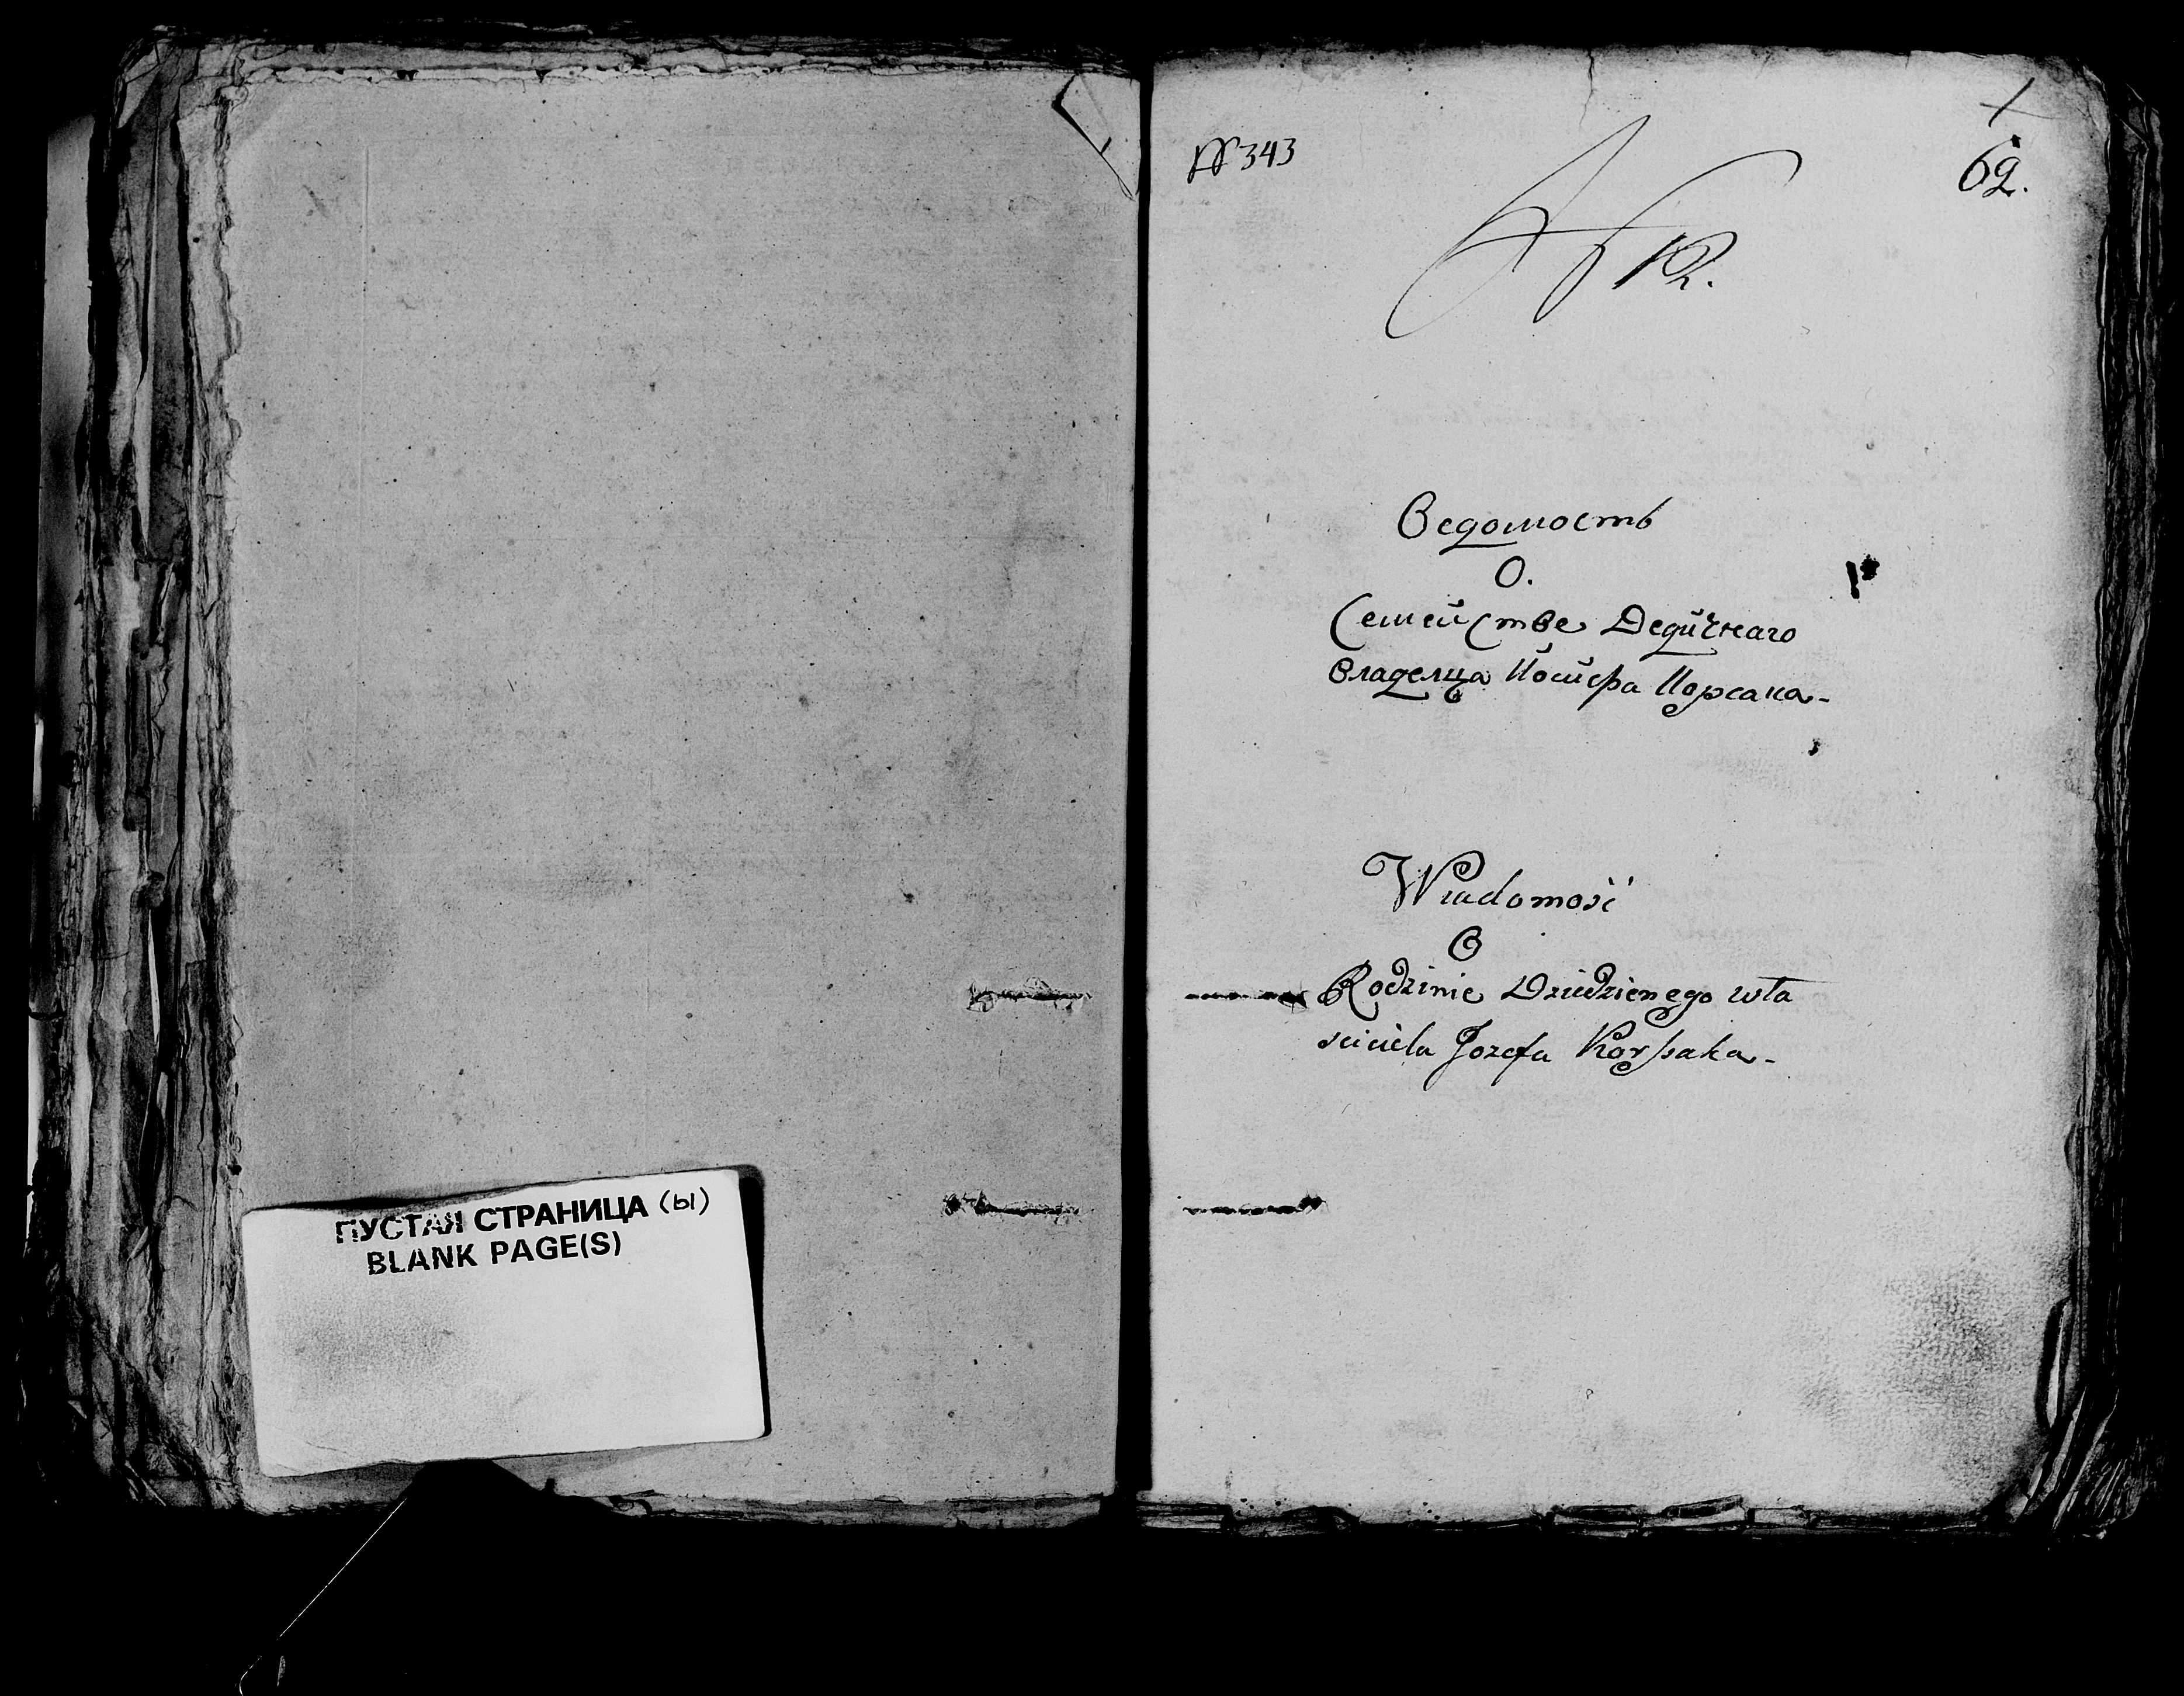 ПУСТАЯ СТРАНИЦА (ы)
BLANK PAGE(S)
№ 343
62.
№ 12.
Ведомость
О.
Семействе Дедичнаго
владелца Иосифа Корсака-
Wiadomość
O
Rodzinie Dziedzienego wła
sciciela Jozefa Korsaka-